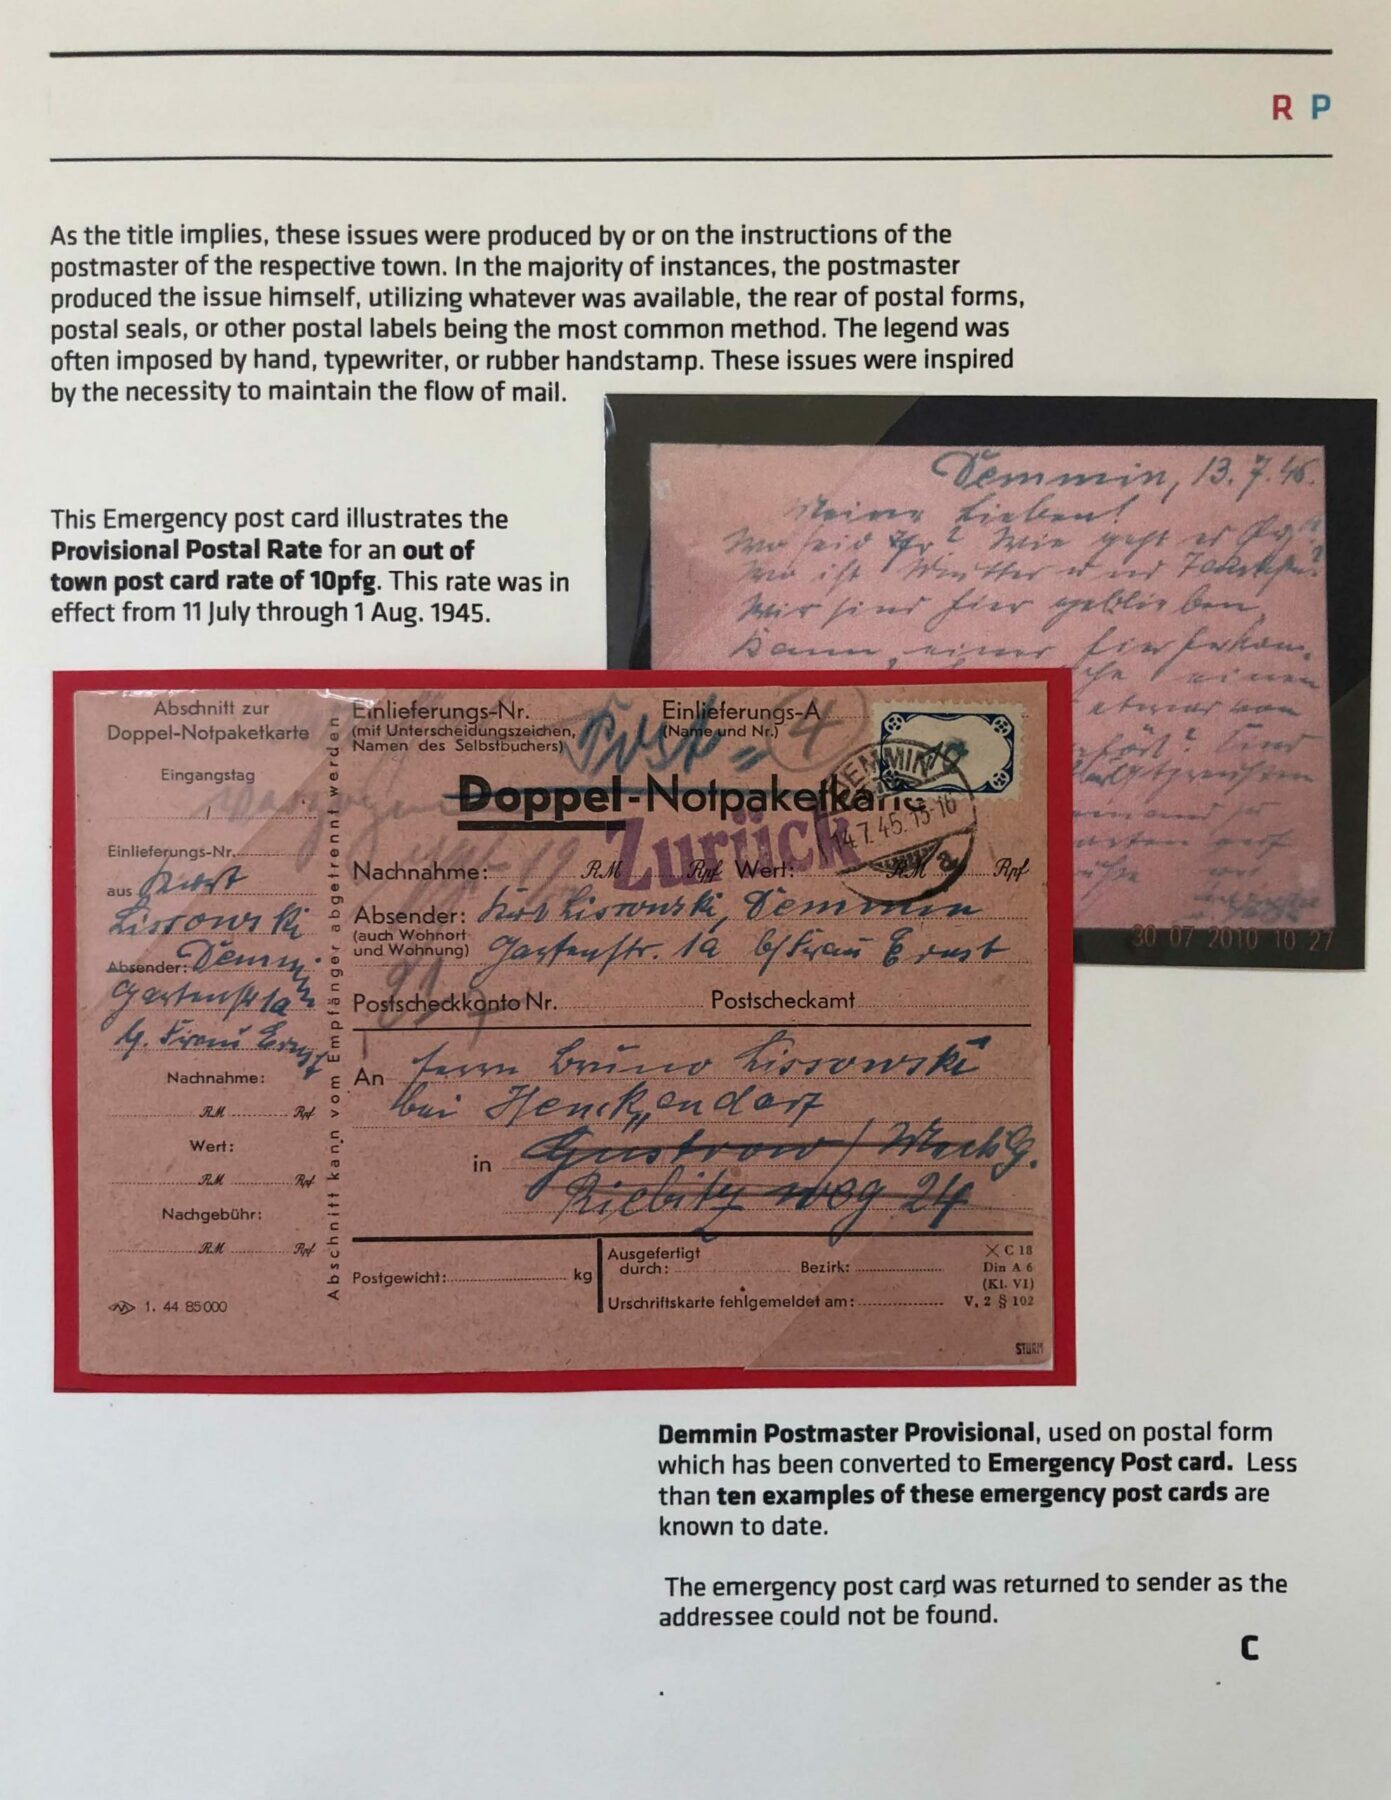 R P
As the title implies, these issues were produced by or on the instructions of the
postmaster of the respective town. In the majority of instances, the postmaster
produced the issue himself, utilizing whatever was available, the rear of postal forms,
postal seals, or other postal labels being the most common method. The legend was
often imposed by hand, typewriter, or rubber handstamp. These issues were inspired
by the necessity to maintain the flow of mail.
This Emergency post card illustrates the
Provisional Postal Rate for an out of
town post card rate of 10pfg. This rate was in
effect from 11 July through 1 Aug. 1945.
Demmin, 13.7.45.
Meine Lieben!
Wo seid Ihr? Wie geht es
Wo ist Mutter und
Wir sind hier geblieben,
Kann einer
einen
etwas von
30 07 2010 10 27
Abschnitt zur
Doppel-Notpaketkarte
Eingangstag
Einlieferungs-Nr.
aus Kurt
Lissowski
Absender: Demmin
Gartenstr 1a
b/. Frau Ernst
Nachnahme:
RM Rpf
Wert:
RM Rpf
Nachgebühr:
RM Rpf
1. 44 85000
Abschnitt kann vom Empfänger abgetrennt werden
Einlieferungs-Nr.
(mit Unterscheidungszeichen,
Namen des Selbstbuchers)
Post= 4
Einlieferungs-A
(Name und Nr.)
10
Doppel-Notpaketkarte
DEMMIN
14.7.45.15-16
a
Zurück
Nachnahme: RM Rpf Wert: RM Rpf
Absender: Kurt Lissowski, Demmin
(auch Wohnort
und Wohnung)
Gartenstr. 1a b/Frau Ernst
Postscheckkonto Nr. Postscheckamt
An Herrn Bruno Lissowski
bei Henckendorf
in Güstrow / Meckl.
weg 24
Postgewicht: kg
Ausgefertigt
durch: Bezirk:
Urschriftskarte fehlgemeldet am:
C 18
Din A 6
(Kl. VI)
V, 2 § 102
STURM
Demmin Postmaster Provisional, used on postal form
which has been converted to Emergency Post card. Less
than ten examples of these emergency post cards are
known to date.
The emergency post card was returned to sender as the
addressee could not be found.
C